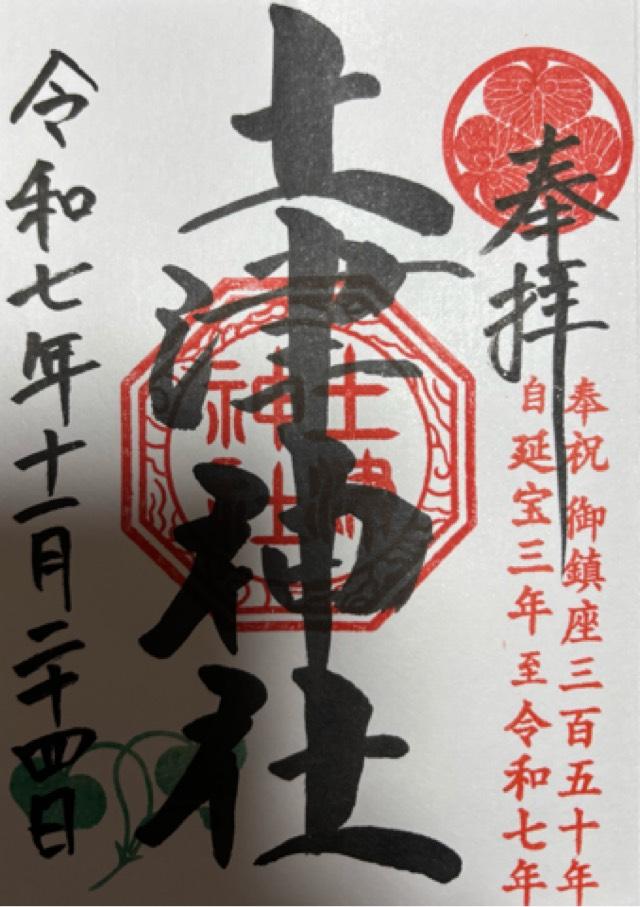 奉拝
奉祝 御鎮座三百五十年
自延宝三年至令和七年
土津神社
土津
神社
令和七年十一月二十四日